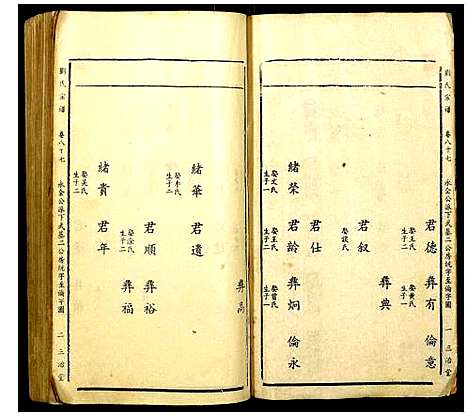 劉氏宗譜 卷八十七 永全公派下武基二公房統字至倫字圖 一 三治堂
君德 娶王氏 生子二 彝有 娶黃氏 生子一 倫意
彝典
君叙 娶談氏
君仕
緒榮 娶文氏 生子一 君齡 娶王氏 生子二 彝炯 娶曾氏 生子一 倫永
彝高
緒華 娶李氏 生子二 君遺
君順 娶涂氏 生子二 彝裕
緒貴 娶吳氏 生子二 君年 彝福
劉氏宗譜 卷八十七 永全公派下武基二公房統字至倫字圖 二 三治堂